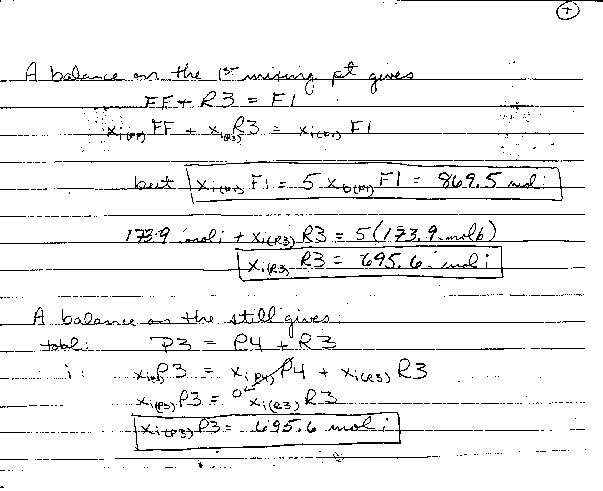 7
A balance on the 1st mixing pt gives
FF + R3 = F1
xi(FF) FF + xi(R3) R3 = xi(F1) F1
but xi(F1) F1 = 5 xb(F1) F1 = 869.5 mol i
173.9 mol i + xi(R3) R3 = 5(173.9 mol b)
xi(R3) R3 = 695.6 mol i
A balance on the still gives:
total: P3 = P4 + R3
i: xi(P3) P3 = xi(P4) P4 + xi(R3) R3
0
xi(P3) P3 = xi(R3) R3
xi(P3) P3 = 695.6 mol i